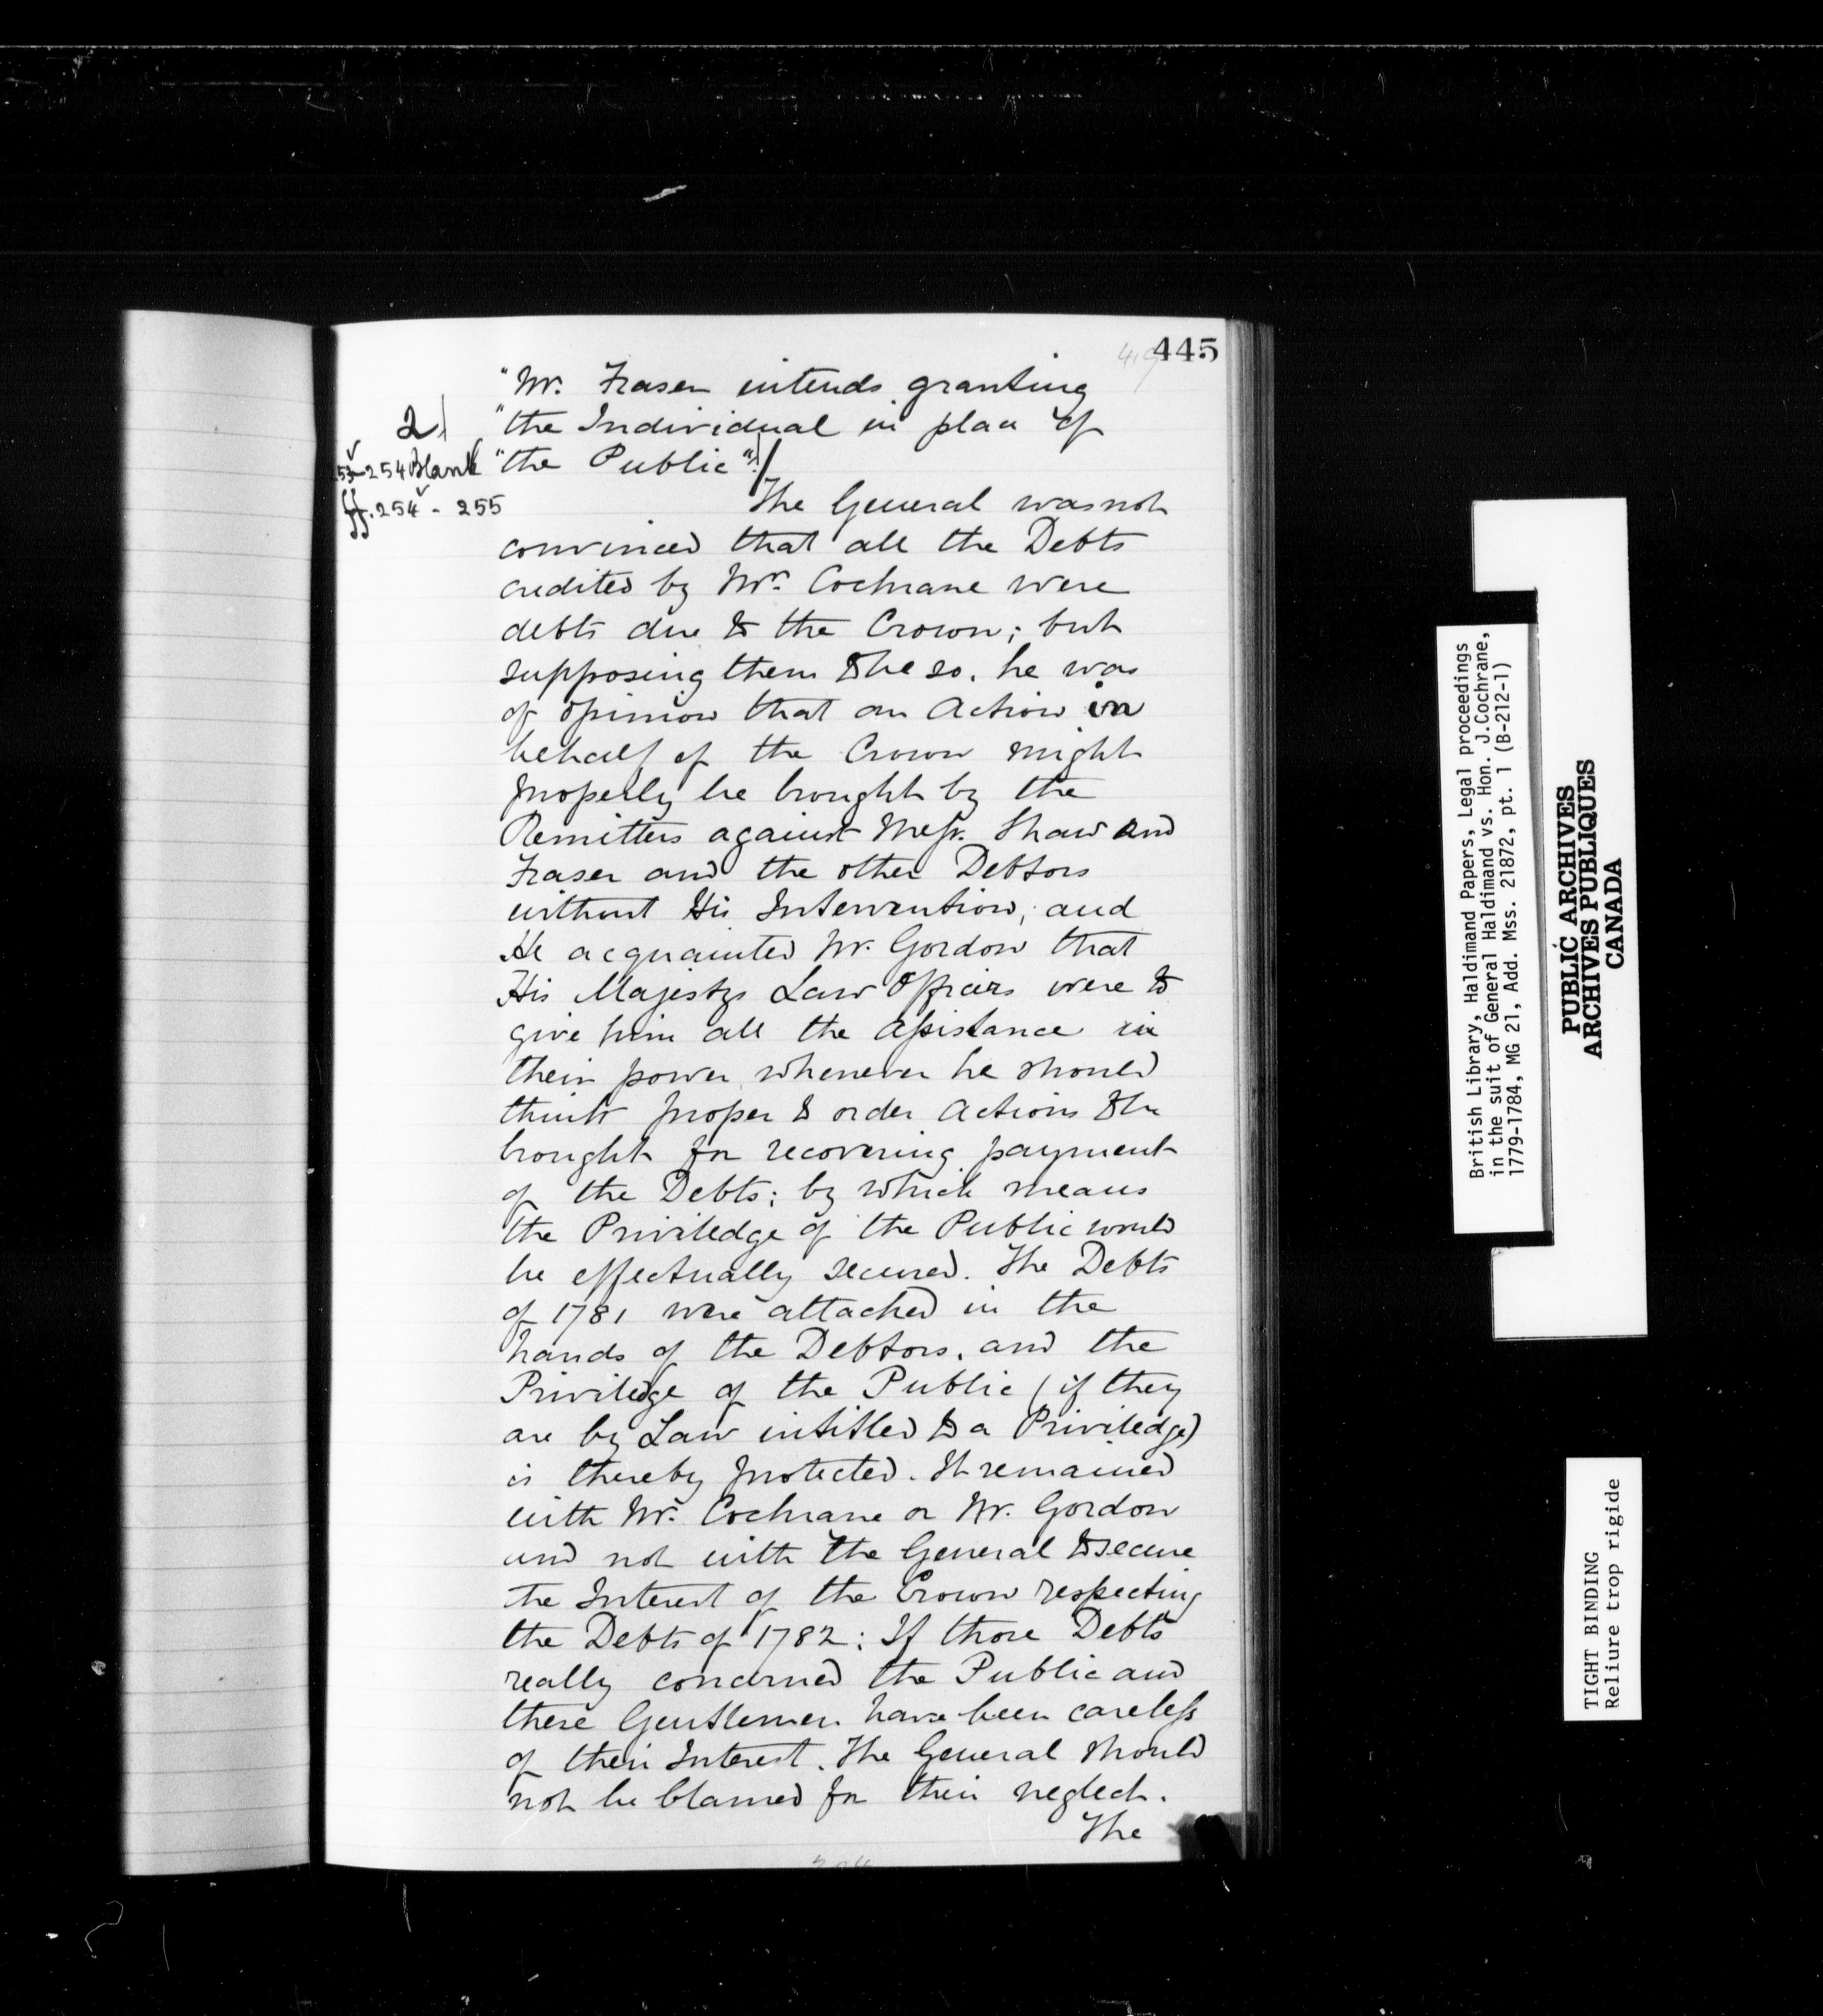 445
"Mr. Fraser intends granting
"the Individual in place of
"the Public"/
2
254 Blank
ff. 254v - 255
The General was not
convinced that all the Debts
credited by Mr. Cochrane were
debts due to the Crown; but
supposing them to be so, he was
of opinion that an Action in
behalf of the Crown might
properly be brought by the
Remitters against Messr. Shaw and
Fraser and the other Debtors
without His Intervention, and
He acquainted Mr. Gordon that
His Majestys Law Officers were to
give him all the Assistance in
their power whenever he should
think proper to order Actions to be
brought for recovering payment
of the Debts; by which means
the Priviledge of the Public would
be effectually secured. The Debts
of 1781 were attached in the
hands of the Debtors, and the
Priviledge of the Public (if they
are by Law intitled to a Priviledge)
is thereby protected. It remained
with Mr. Cochrane or Mr. Gordon
and not with the General to secure
the Interest of the Crown respecting
the Debts of 1782: If those Debts
really concerned the Public and
these Gentlemen have been careless
of their Interest. The General should
not be blamed for their neglect.
The
British Library, Haldimand Papers, Legal proceedings
in the suit of General Haldimand vs. Hon. J.Cochrane,
1779-1784, MG 21, Add. Mss. 21872, pt. 1 (B-212-1)
PUBLIC ARCHIVES
ARCHIVES PUBLIQUES
CANADA
TIGHT BINDING
Reliure trop rigide